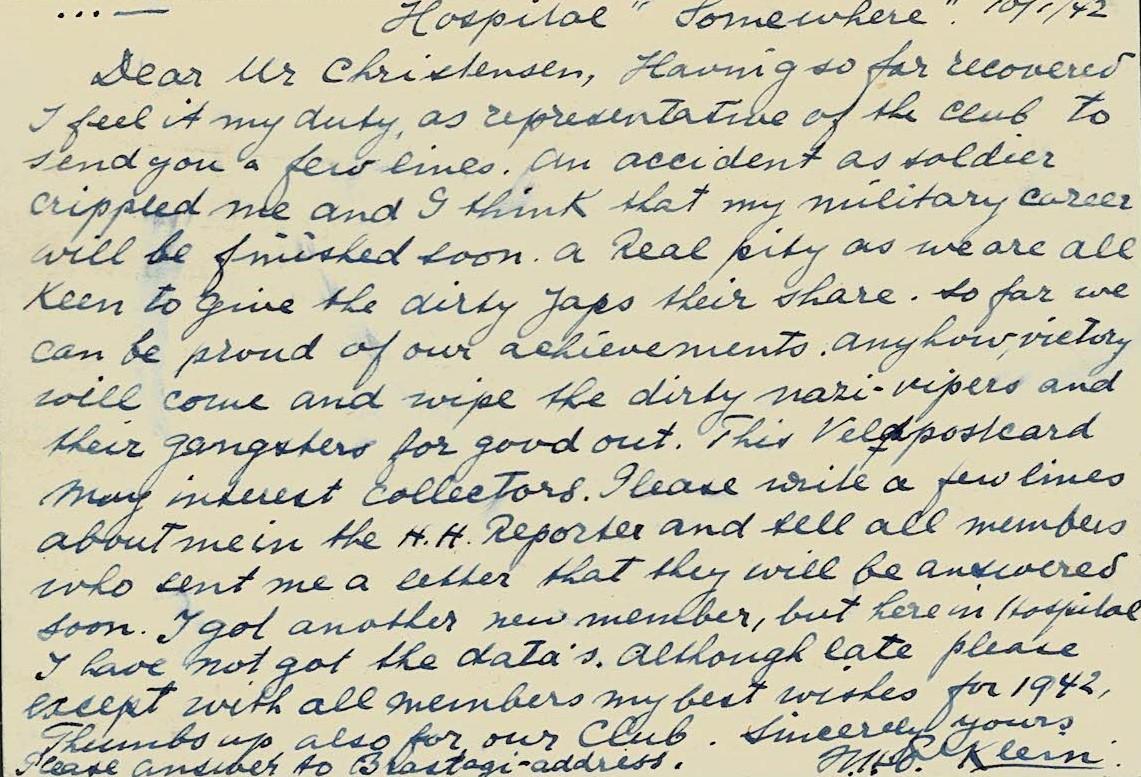 ...— Hospital "Somewhere". 10/1/42
Dear Mr Christensen, Having so far recovered
I feel it my duty, as representative of the club to
send you a few lines. An accident as soldier
crippled me and I think that my military career
will be finished soon. a Real pity as we are all
Keen to give the dirty Japs their share. So far we
can be proud of our achievements. Anyhow, victory
will come and wipe the dirty nazi-vipers and
their gangsters for good out. This Veldpostcard
may interest collectors. Please write a few lines
about me in the H.H. Reporter and tell all members
who sent me a letter that they will be answered
soon. I got another new member, but here in Hospital
I have not got the data's. Although late please
except with all members my best wishes for 1942,
Thumbs up also for our Club. Sincerely yours
Please answer to Brastagi-address. Klein.